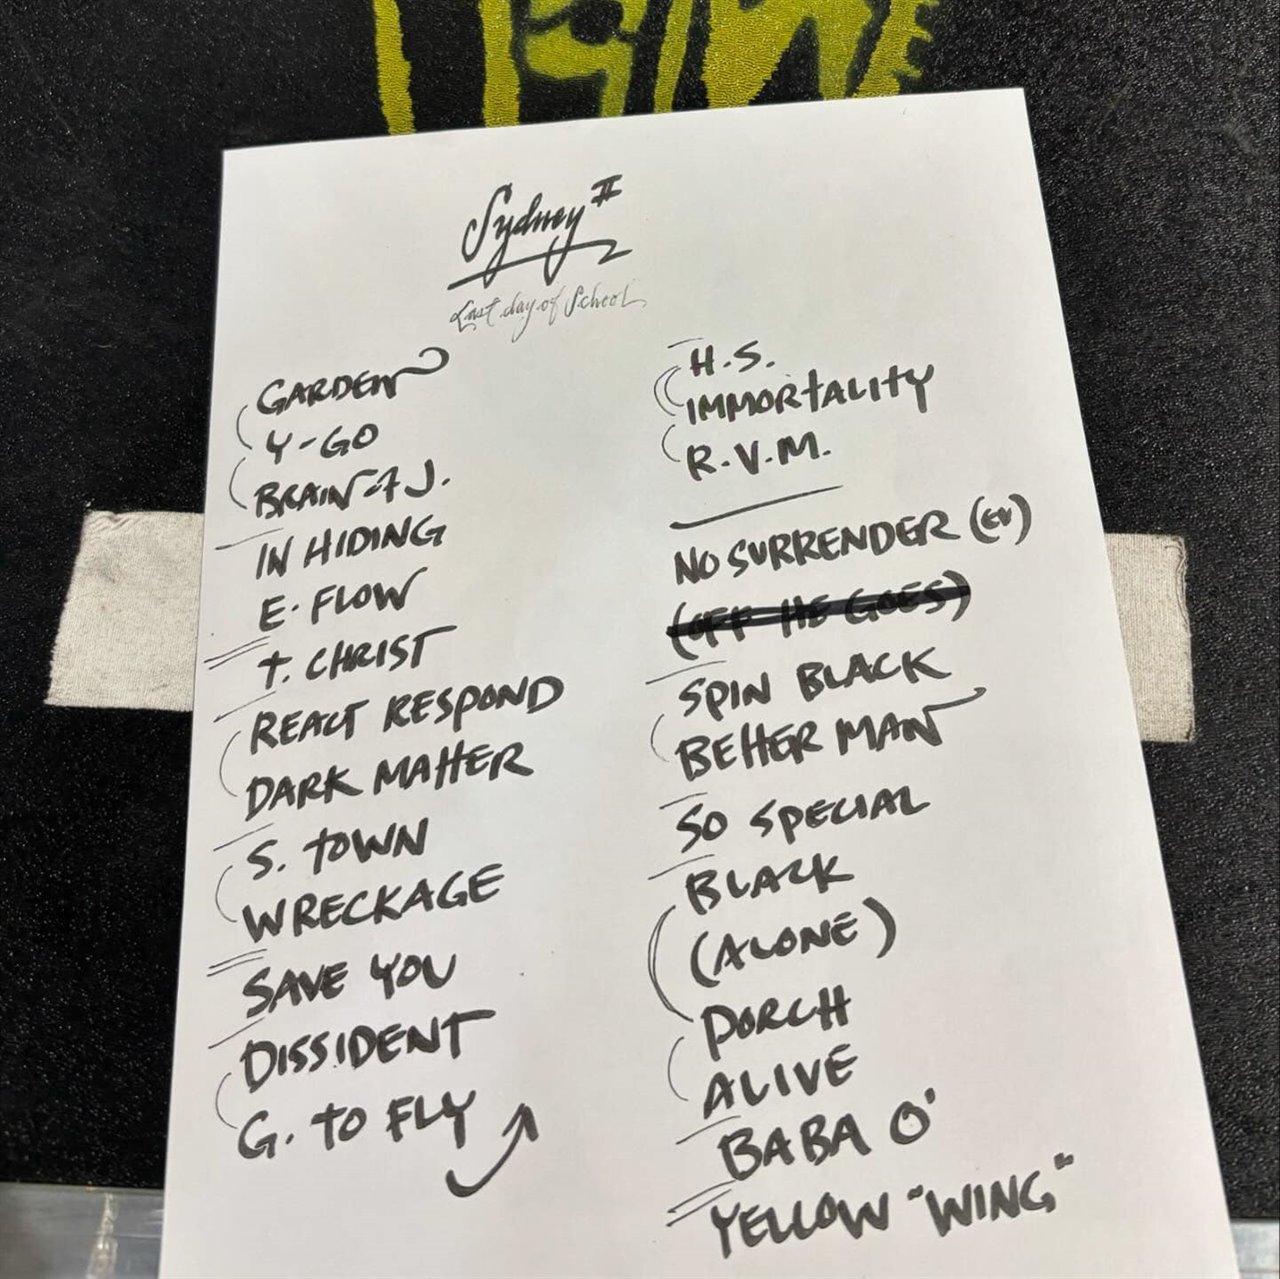 Sydney II
Last day of School
GARDEN
Y-GO
BRAIN of J.
IN HIDING
E. FLOW
t. CHRIST
REACT RESPOND
DARK MATTER
S. TOWN
WRECKAGE
SAVE YOU
DISSIDENT
G. TO FLY
H.S.
IMMORTALITY
R.V.M.
NO SURRENDER (EV)
(OFF HE GOES)
SPIN BLACK
BETTER MAN
SO SPECIAL
BLACK
(ALONE)
PORCH
ALIVE
BABA O'
YELLOW "WING"